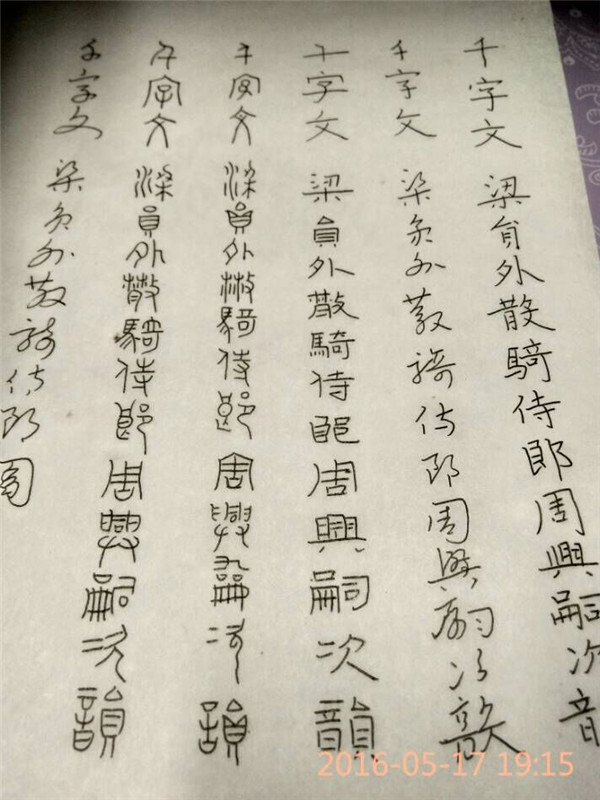 千字文 梁員外散騎侍郎周興嗣次音
千字文 梁員外散騎侍郎周興嗣次韻
千字文 梁員外散騎侍郎周興嗣次韻
千字文 梁員外散騎侍郎周興嗣次韻
千字文 梁員外散騎侍郎周興嗣次韻
千字文 梁員外散騎侍郎周
2016-05-17 19:15